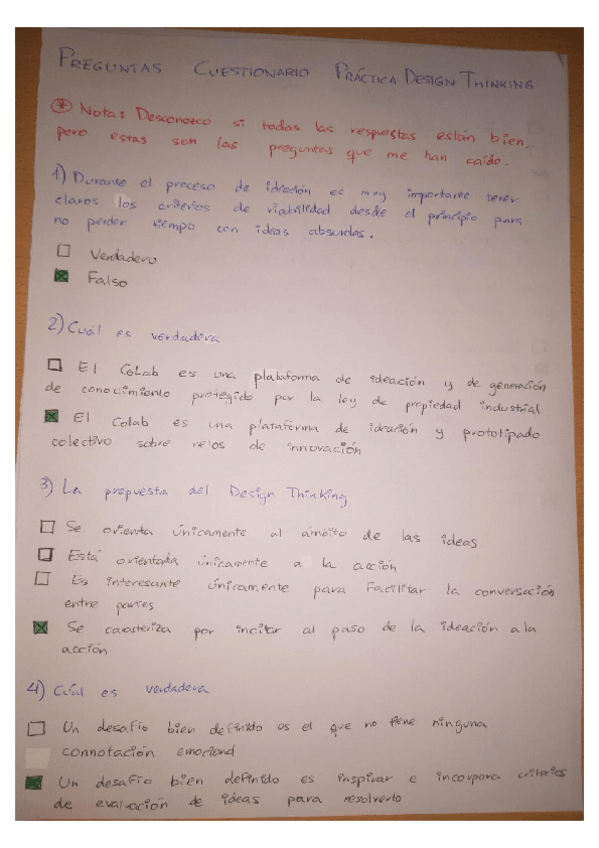 PREGUNTAS CUESTIONARIO PRÁCTICA DESIGN THINKING
* Nota: Desconozco si todas las respuestas están bien,
pero estas son las preguntas que me han caído.
1) Durante el proceso de ideación es muy importante tener
claros los criterios de viabilidad desde el principio para
no perder tiempo con ideas absurdas.
Verdadero
Falso
2) Cuál es verdadera
El CoLab es una plataforma de ideación y de generación
de conocimiento protegido por la ley de propiedad industrial
El Colab es una plataforma de ideación y prototipado
colectivo sobre retos de innovación
3) La propuesta del Design Thinking
Se orienta únicamente al ámbito de las ideas
Está orientada únicamente a la acción
Es interesante únicamente para Facilitar la conversación
entre partes
Se caracteriza por incitar al paso de la ideación a la
acción
4) Cuál es verdadera
Un desafío bien definido es el que no tiene ninguna
connotación emocional
Un desafío bien definido es inspirar e incorpora criterios
de evaluación de ideas para resolverlo